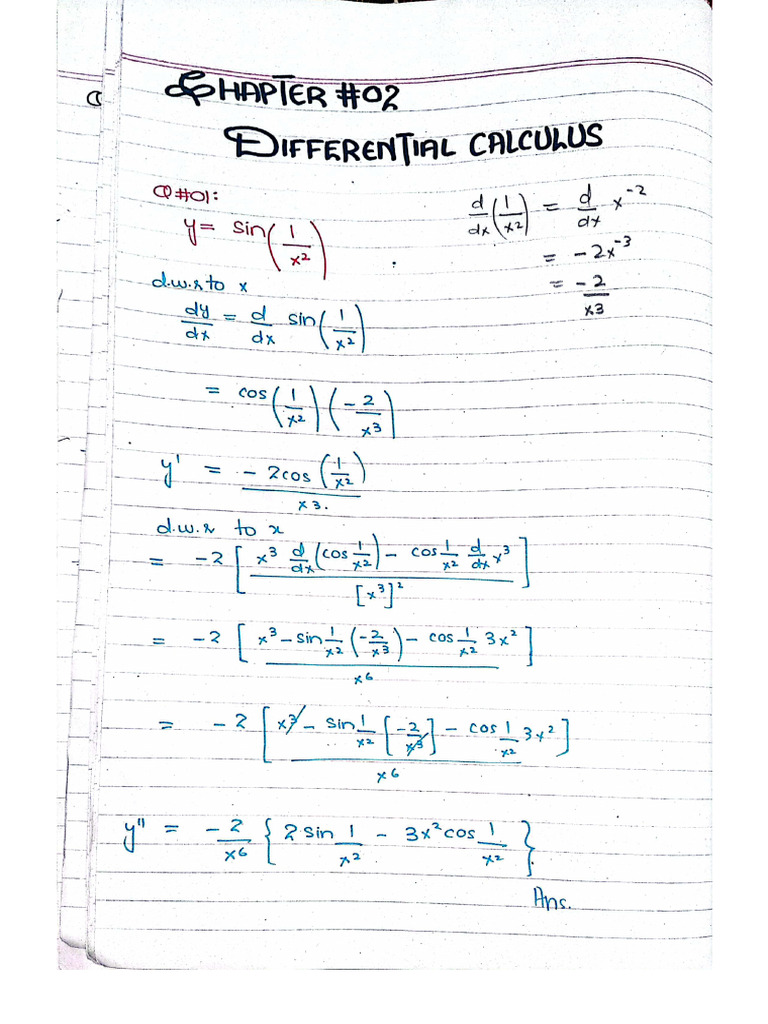 CHAPTER #02
DIFFERENTIAL CALCULUS
Q#01:
y = sin(1/x²)
d/dx(1/x²) = d/dx x⁻²
= -2x⁻³
= -2/x3
d.w.r to x
dy/dx = d/dx sin(1/x²)
= cos(1/x²)(-2/x³)
y' = -2cos(1/x²)/x3.
d.w.r to x
= -2[x³ d/dx(cos 1/x²) - cos 1/x² d/dx x³ / [x³]²]
= -2[x³ - sin 1/x² (-2/x³) - cos 1/x² 3x² / x6]
= -2[x³ - sin 1/x² [-2/x³] - cos 1/x² 3x² / x6]
y" = -2/x6 {2 sin 1/x² - 3x² cos 1/x²}.
Ans.